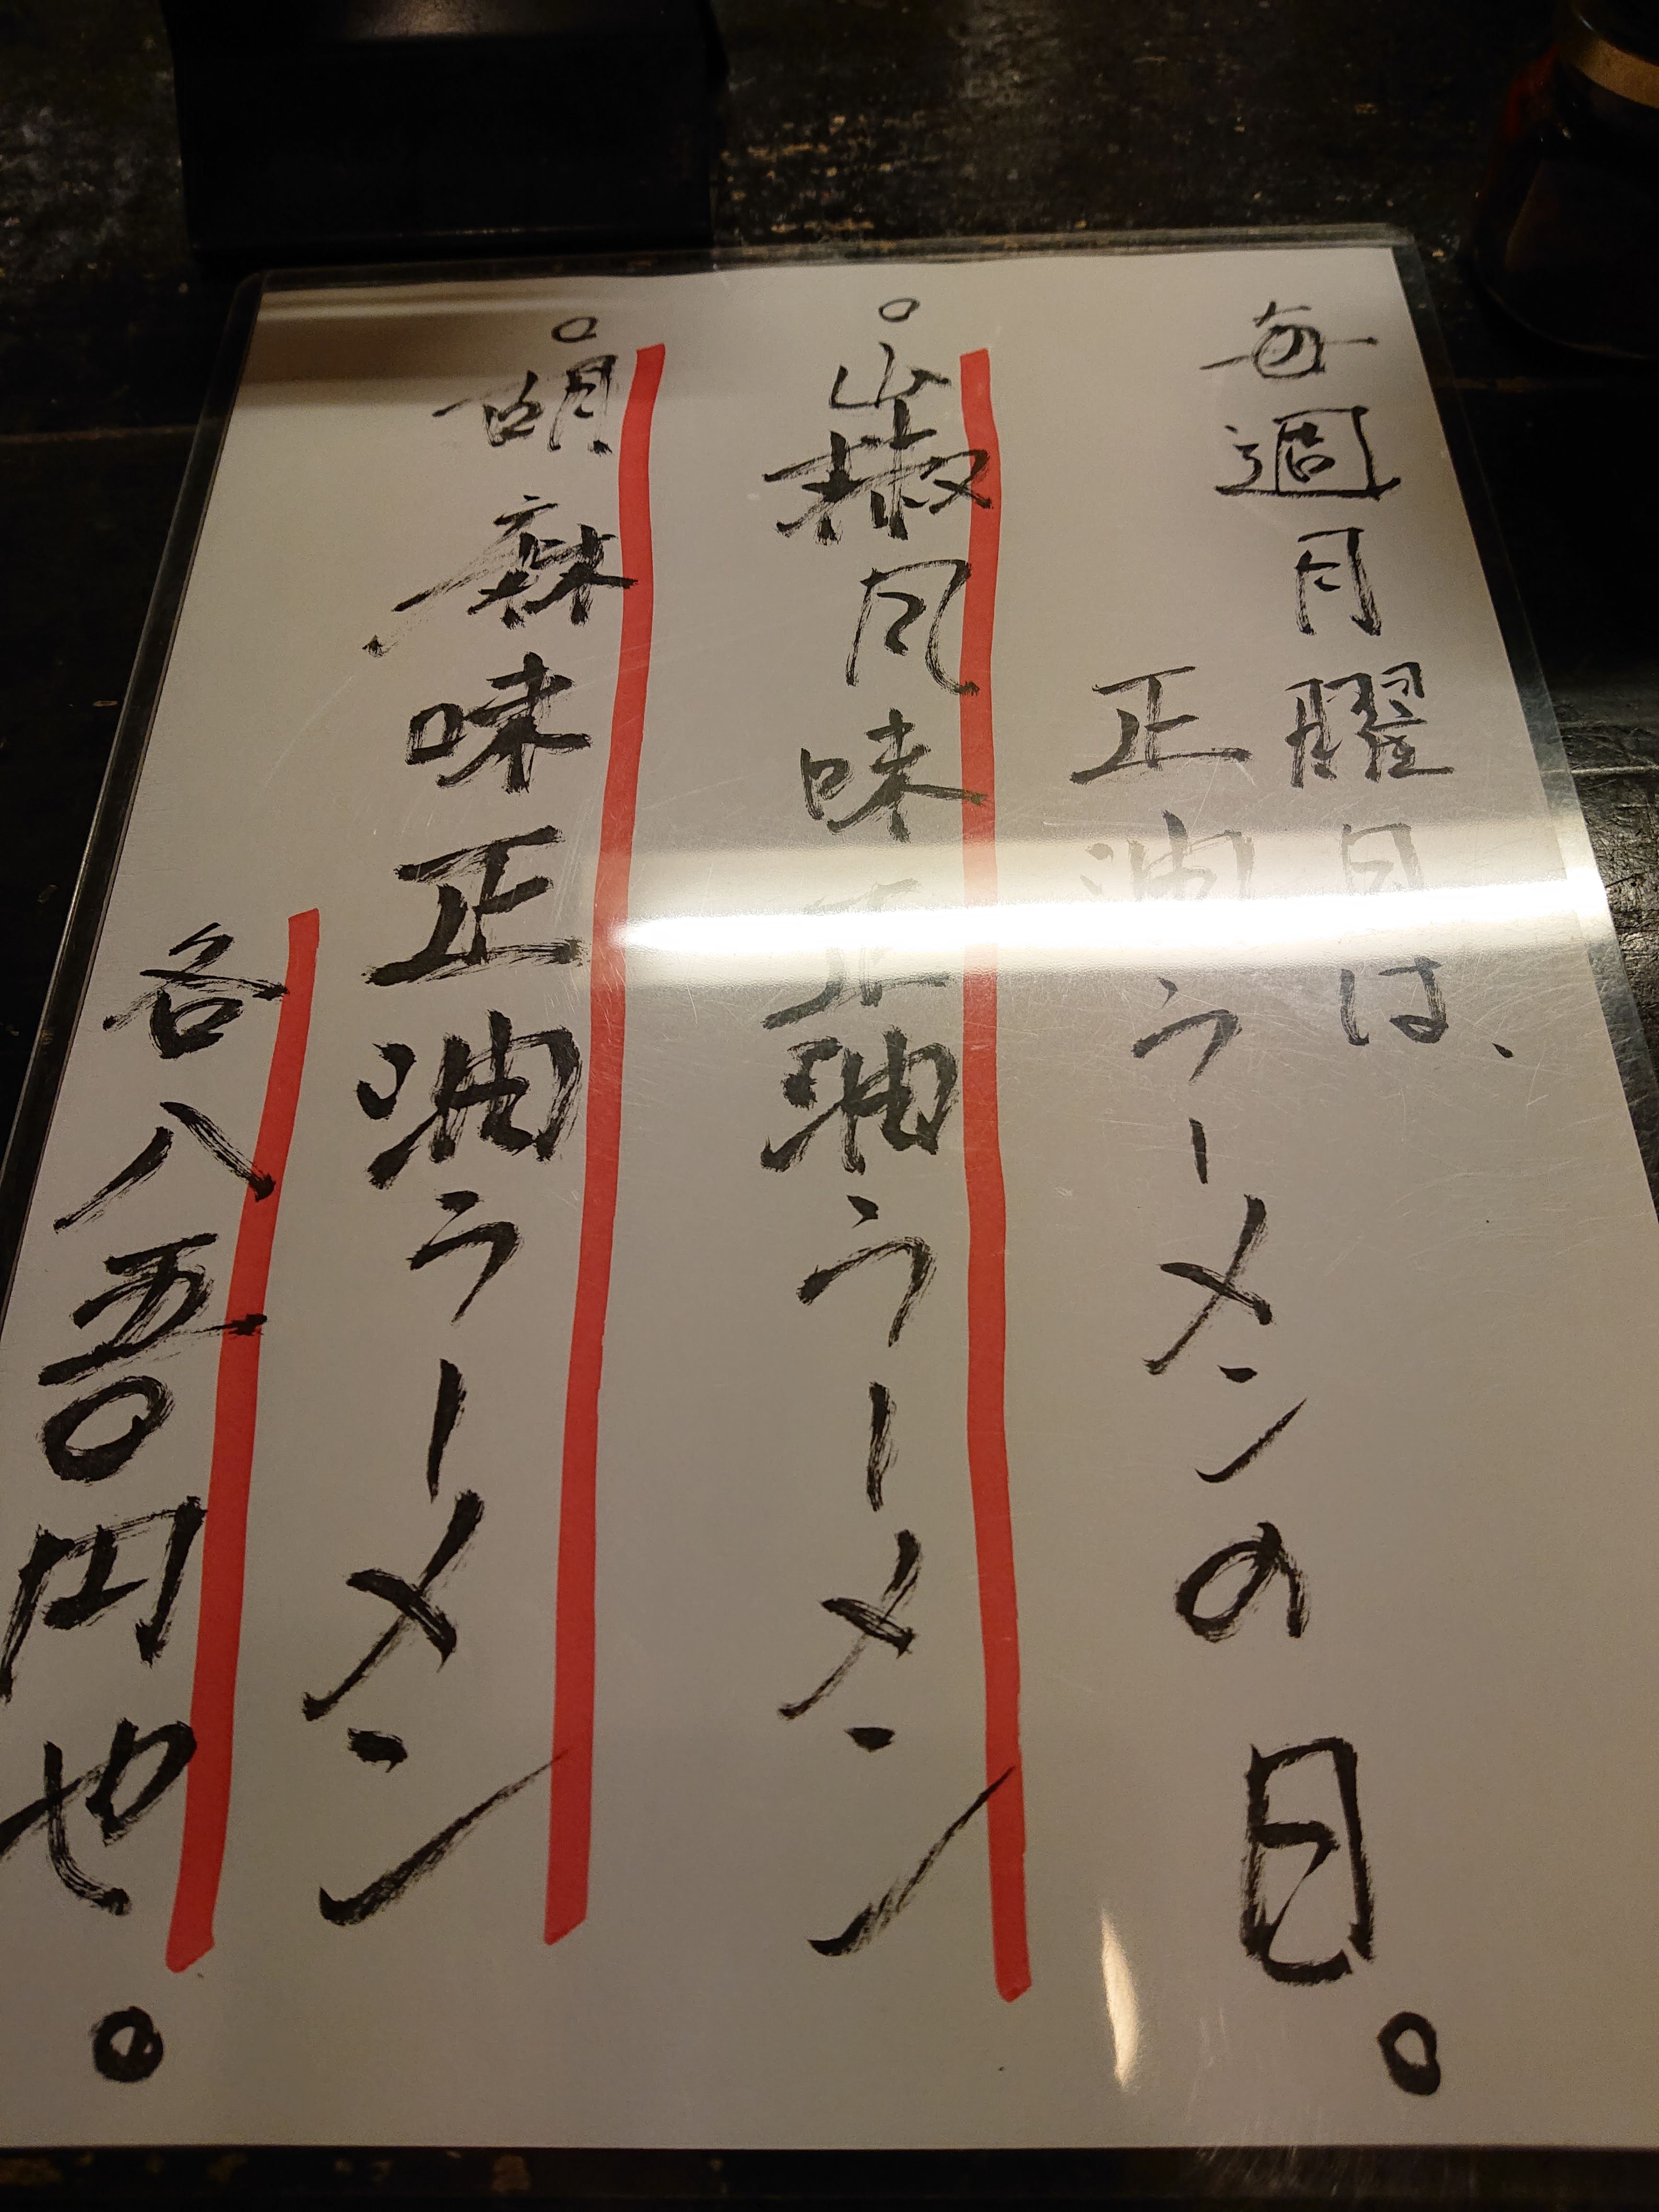 毎週月曜日は、
正油ラーメンの日。
○山椒風味正油ラーメン
○胡麻味正油ラーメン
各八五〇円也。